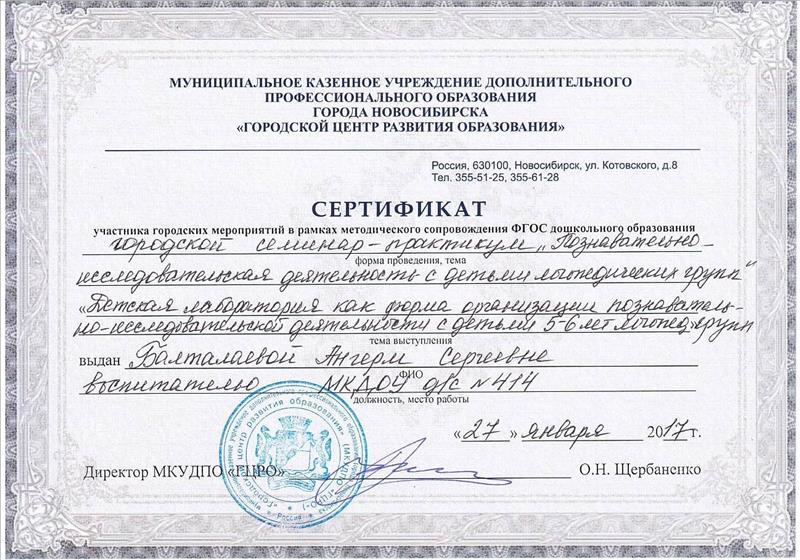 МУНИЦИПАЛЬНОЕ КАЗЕННОЕ УЧРЕЖДЕНИЕ ДОПОЛНИТЕЛЬНОГО
ПРОФЕССИОНАЛЬНОГО ОБРАЗОВАНИЯ
ГОРОДА НОВОСИБИРСКА
«ГОРОДСКОЙ ЦЕНТР РАЗВИТИЯ ОБРАЗОВАНИЯ»
Россия, 630100, Новосибирск, ул. Котовского, д.8
Тел. 355-51-25, 355-61-28
СЕРТИФИКАТ
участника городских мероприятий в рамках методического сопровождения ФГОС дошкольного образования
городской семинар-практикум „Познавательно-
форма проведения, тема
исследовательская деятельность с детьми логопедических групп“
«Детская лаборатория как форма организации познаватель-
но-исследовательской деятельности с детьми 5-6 лет логопед. групп
тема выступления
выдан Балталаевой Сергеевне
ФИО
воспитателю МКДОУ д/с №414
должность, место работы
«27» января 2017г.
Директор МКУДПО «ГЦРО» О.Н. Щербаненко